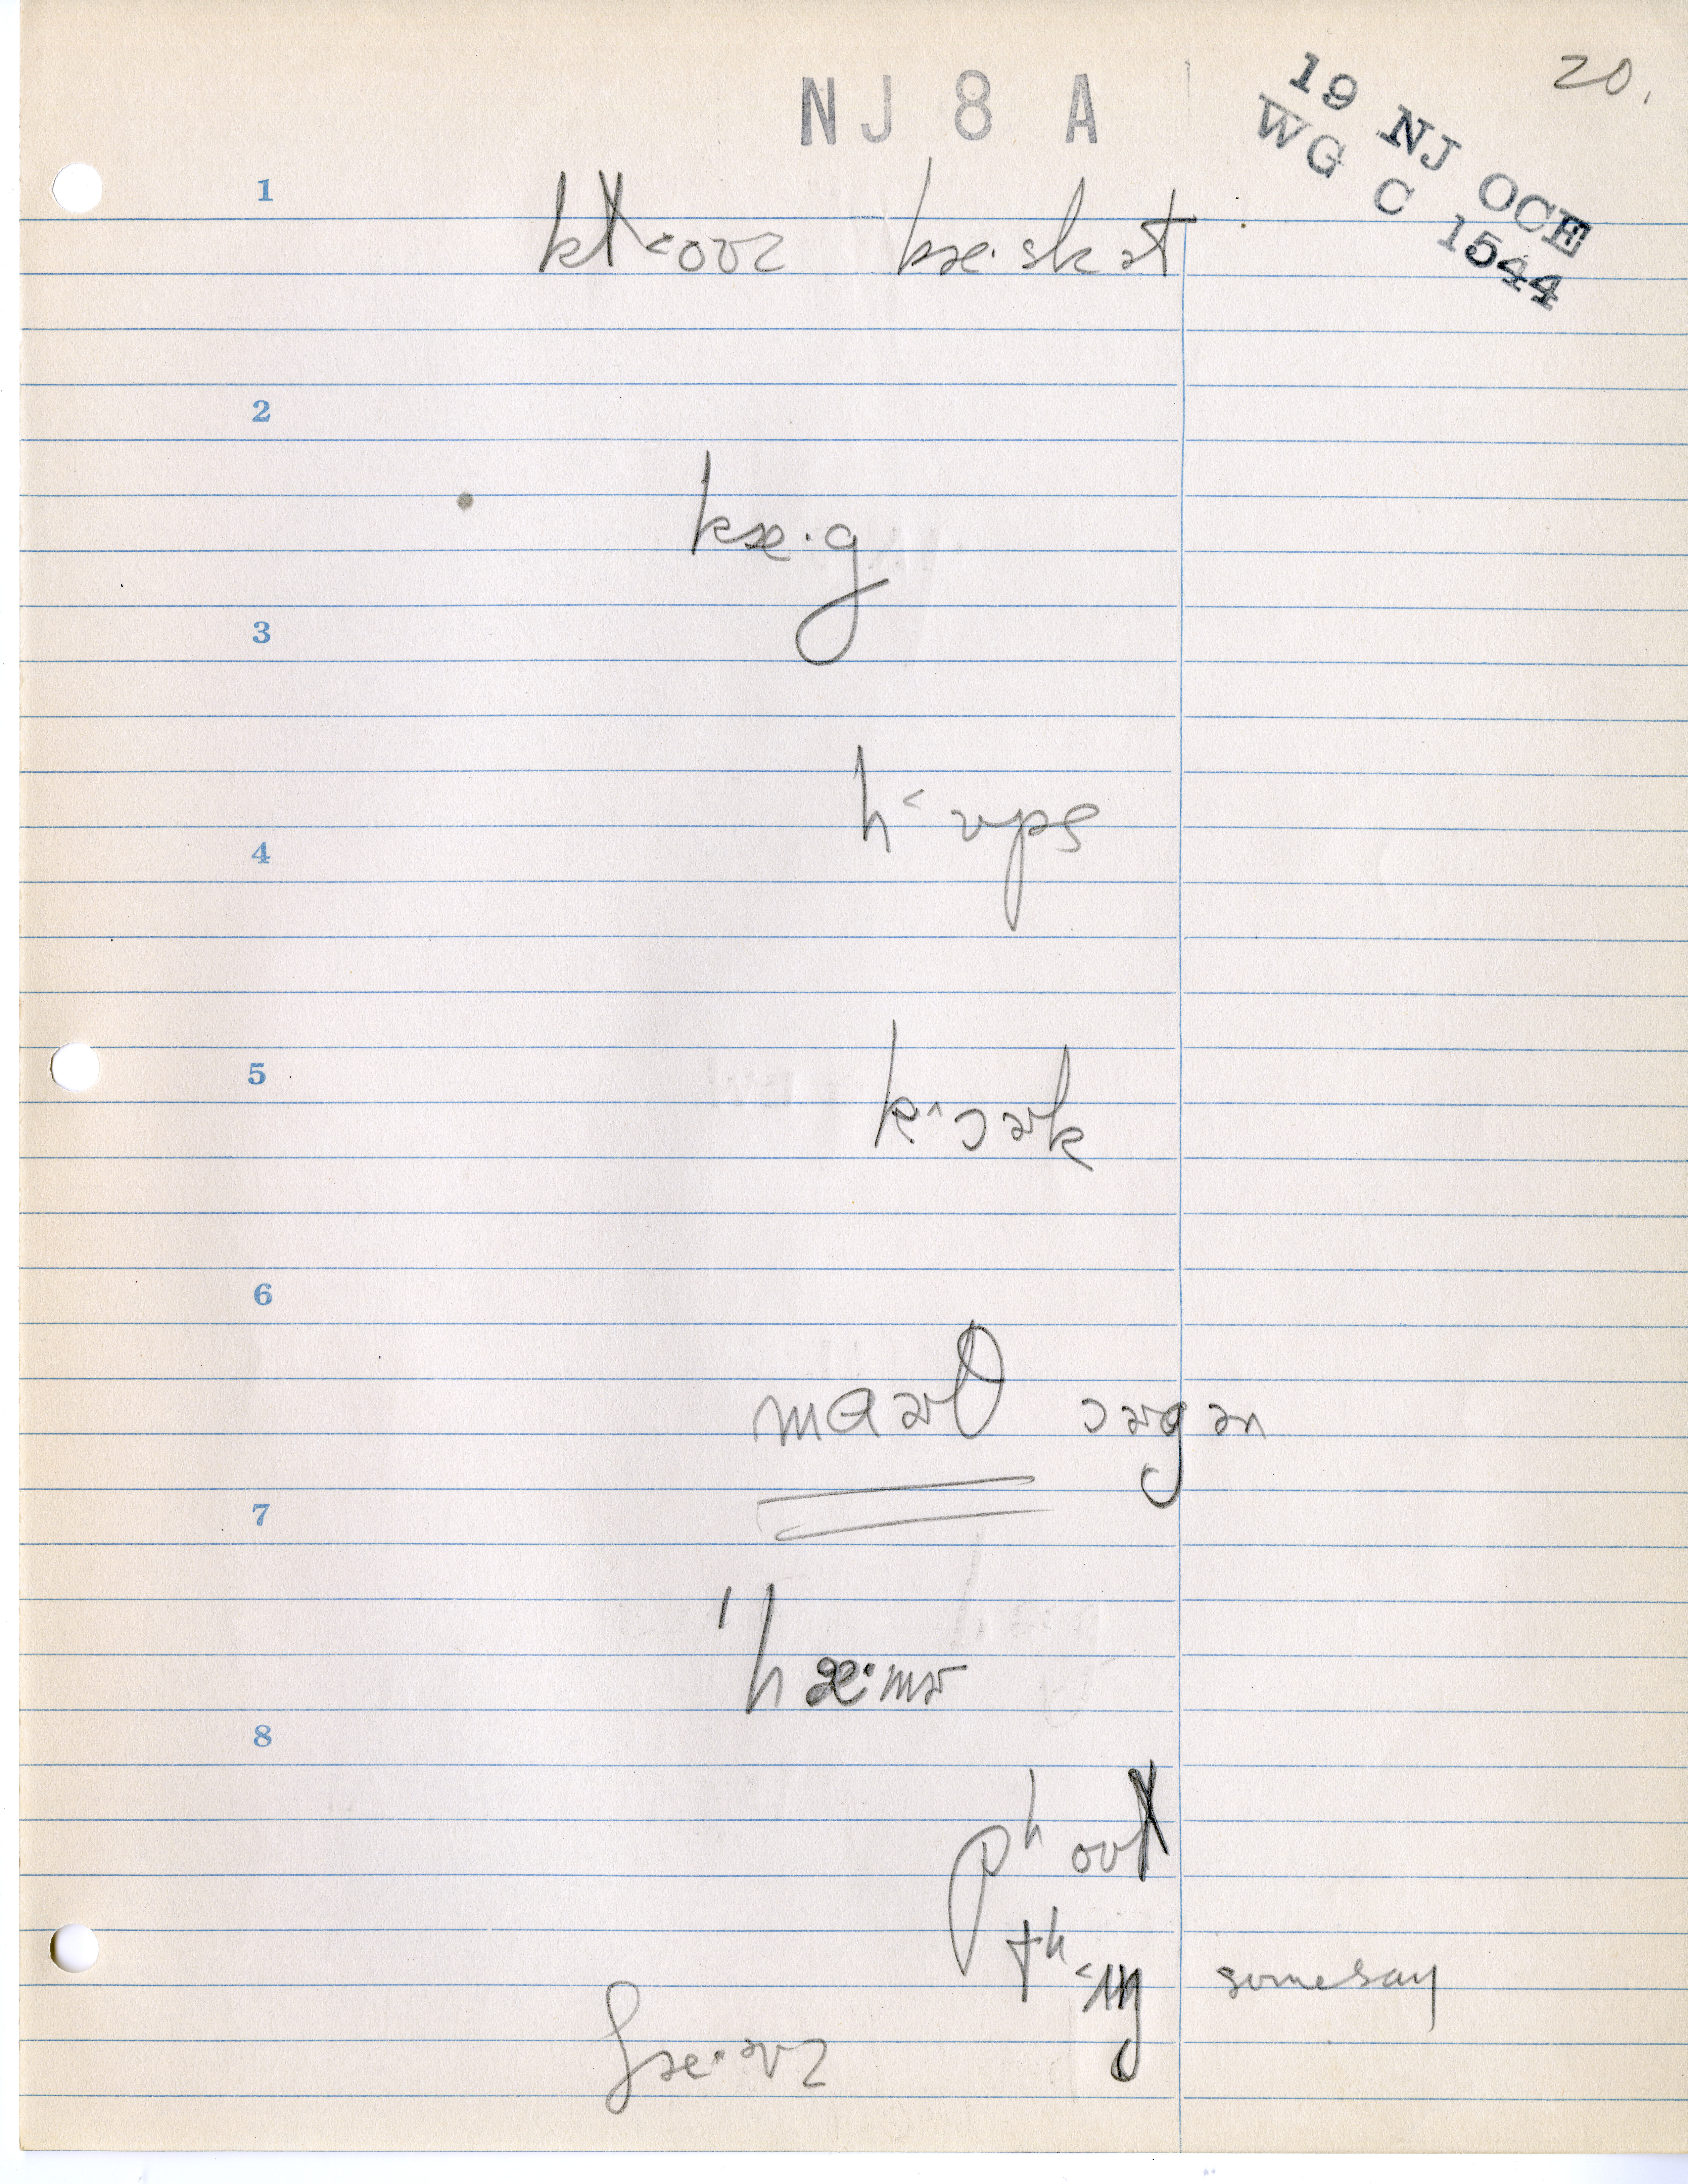 20.
NJ 8 A
19 NJ OCE
WG C 1544
1
kæ·skət
2
kæ·g
3
h˂ʊps
4
5
k˄ɔɚk
6
maʊθ ɔɚgən
7
ˈhæ·mɚ
8
pʰoʊƗ
tʰ˂ɪŋ somesay
ʃæ·ɚz